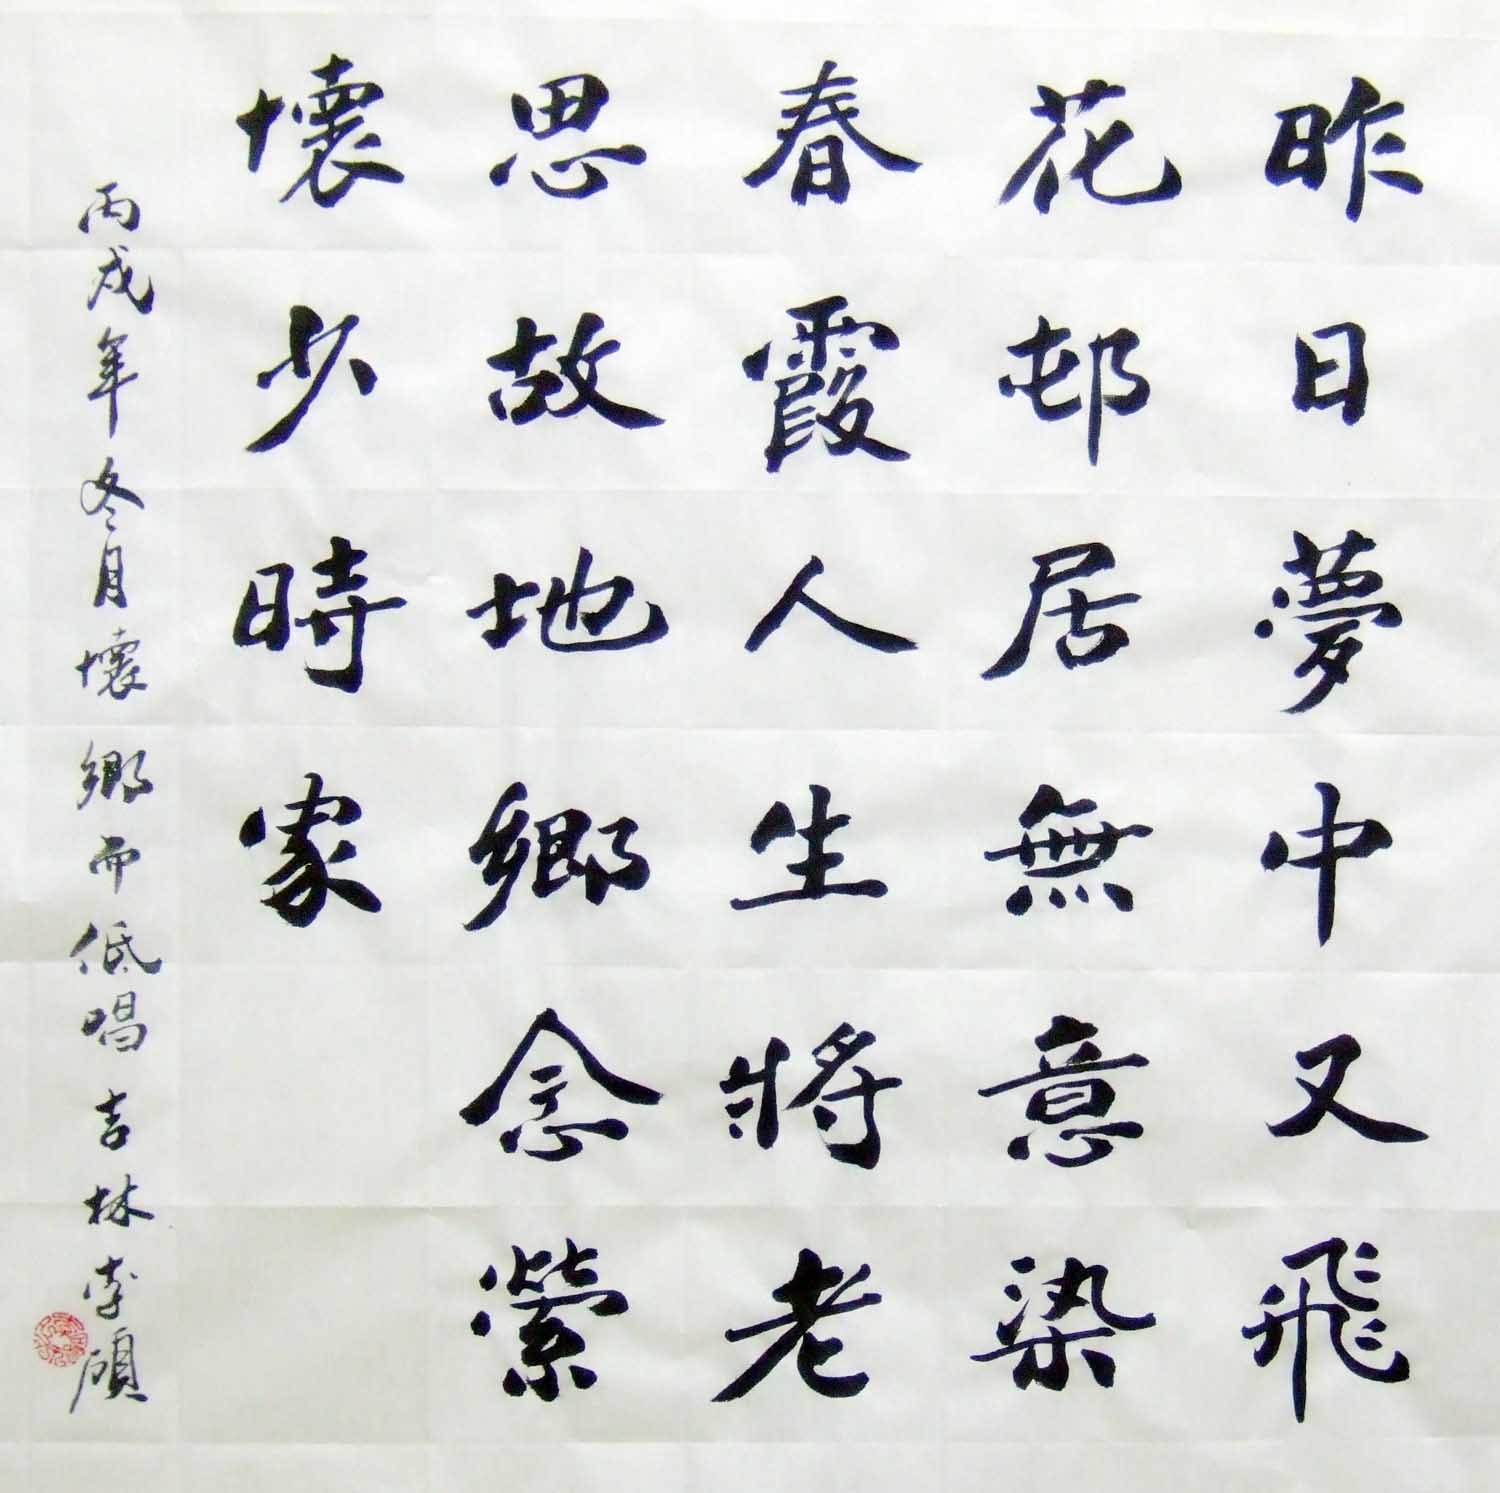 昨日夢中又飛
花邨居無意染
春霞人生將老
思故地鄉念縈
懷少時家
丙戌年冬月懷鄉而低唱吉林李碩